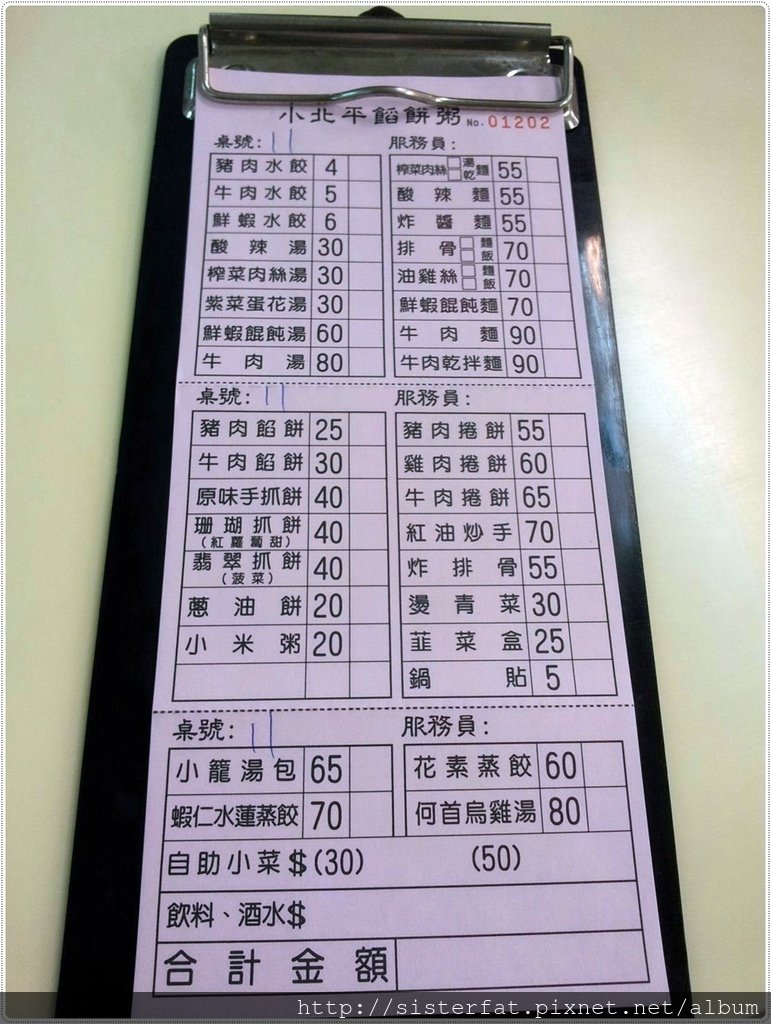 小北平餡餅粥 No. 01202
桌號: 11 服務員:
豬肉水餃 4 榨菜肉絲 湯 乾 麵 55
牛肉水餃 5 酸辣麵 55
鮮蝦水餃 6 炸醬麵 55
酸辣湯 30 排骨 麵 飯 70
榨菜肉絲湯 30 油雞絲 麵 飯 70
紫菜蛋花湯 30 鮮蝦餛飩麵 70
鮮蝦餛飩湯 60 牛肉麵 90
牛肉湯 80 牛肉乾拌麵 90
桌號: 11 服務員:
豬肉餡餅 25 豬肉捲餅 55
牛肉餡餅 30 雞肉捲餅 60
原味手抓餅 40 牛肉捲餅 65
珊瑚抓餅 (紅蘿蔔甜) 40 紅油炒手 70
翡翠抓餅 (菠菜) 40 炸排骨 55
蔥油餅 20 燙青菜 30
小米粥 20 韮菜盒 25
鍋貼 5
桌號: 11 服務員:
小籠湯包 65 花素蒸餃 60
蝦仁水蓮蒸餃 70 何首烏雞湯 80
自助小菜$(30) (50)
飲料、酒水$
合計金額
http://sisterfat.pixnet.net/album